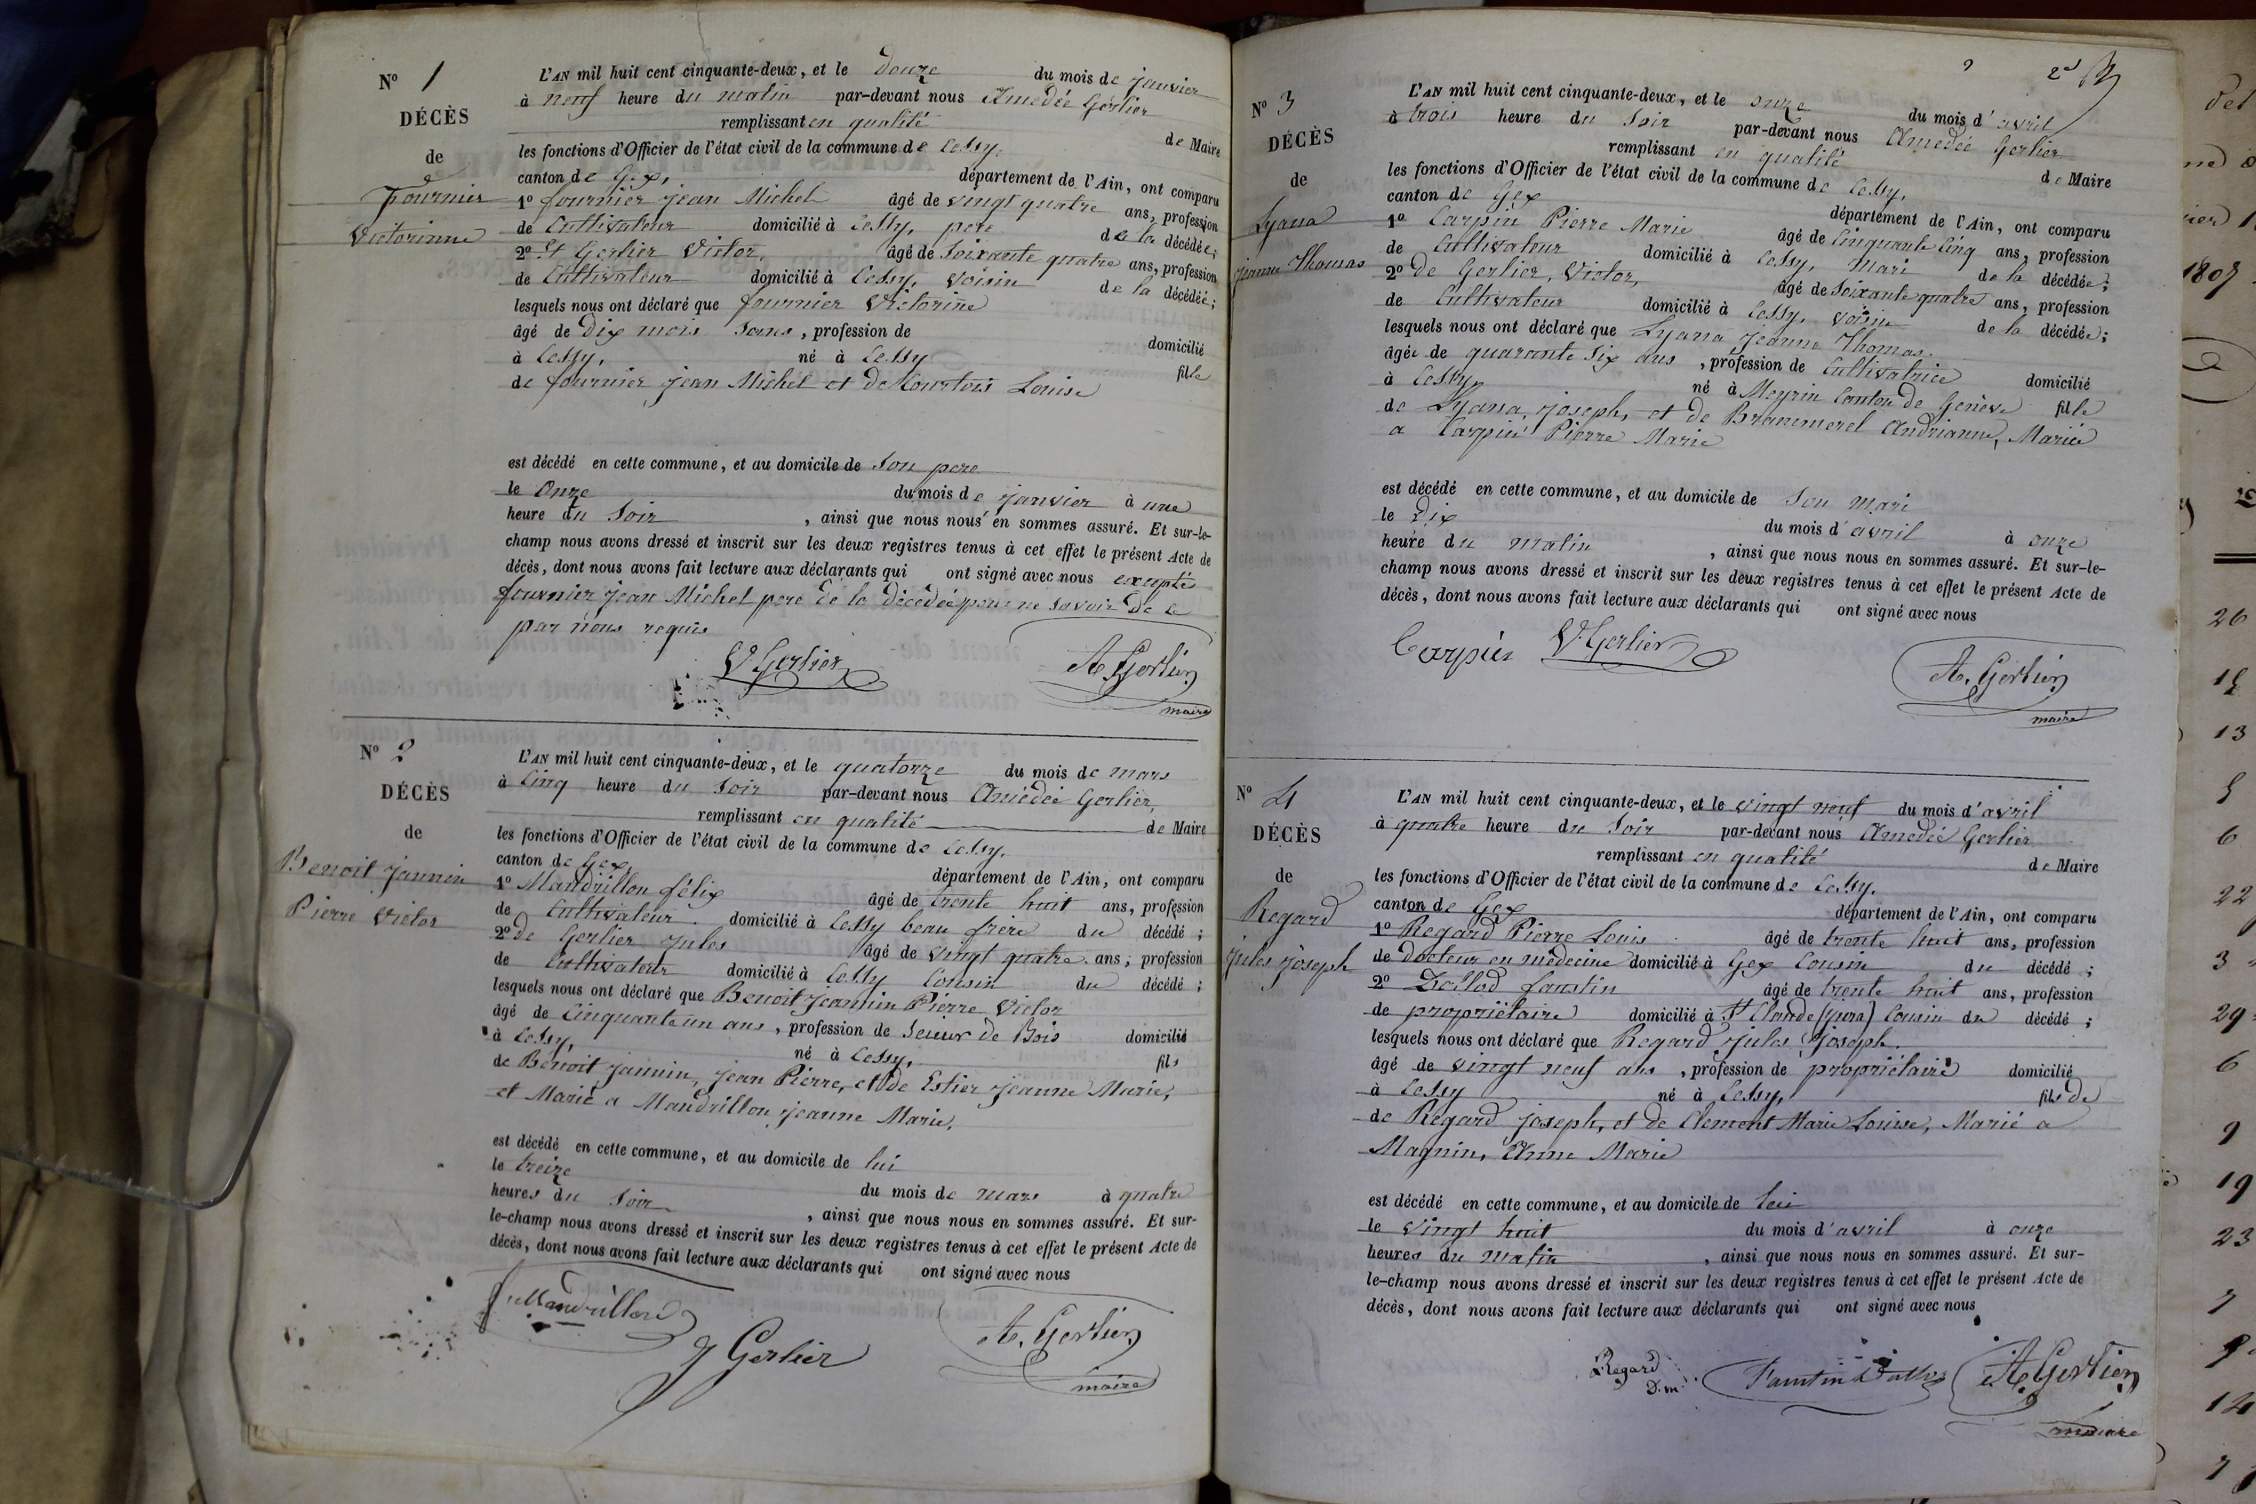 N° 1
DÉCÈS
de
Fournier
Victorinne
L'AN mil huit cent cinquante-deux, et le douze du mois de janvier
à neuf heure du matin par-devant nous Amedée Gerlier
remplissant en qualité de Maire
les fonctions d'Officier de l'état civil de la commune de Cessy,
canton de Gex, département de l'Ain, ont comparu
1° fournier jean Michel âgé de vingt quatre ans, profession
de Cultivateur domicilié à Cessy, pere de la décédée;
2° Et Gerlier Victor, âgé de Soixante quatre ans, profession
de Cultivateur domicilié à Cessy, voisin de la décédée;
lesquels nous ont déclaré que fournier Victorine
âgé de Dix mois , profession de domicilié
à Cessy, né à Cessy fille
de fournier jean Michel et de Courtois Louise
est décédé en cette commune, et au domicile de Son pere
le Onze du mois de janvier à une
heure du Soir , ainsi que nous nous en sommes assuré. Et sur-le-
champ nous avons dressé et inscrit sur les deux registres tenus à cet effet le présent Acte de
décès, dont nous avons fait lecture aux déclarants qui ont signé avec nous excepté
fournier jean Michel pere De la décédée pour ne savoir De ce
par nous requis
V Gerlier A. Gerlier
maire
N° 2
DÉCÈS
de
Benoit Jannin
Pierre Victor
L'AN mil huit cent cinquante-deux, et le quatorze du mois de mars
à Cinq heure du Soir par-devant nous Amédée Gerlier,
remplissant en qualité de Maire
les fonctions d'Officier de l'état civil de la commune de Cessy.
canton de Gex, département de l'Ain, ont comparu
1° Mandrillon félix âgé de trente huit ans, profession
de Cultivateur. domicilié à Cessy beau frère du décédé;
2° de Gerlier jules âgé de vingt quatre ans, profession
de Cultivateur domicilié à Cessy Cousin du décédé;
lesquels nous ont déclaré que Benoit Jeannin Pierre Victor
âgé de Cinquante un ans, profession de Scieur de Bois domicilié
à Cessy, né à Cessy, fils
de Benoit Jannin, Jean Pierre, et de Estier Jeanne Marie,
et Marié a Mandrillon jeanne Marie,
est décédé en cette commune, et au domicile de lui
le treize du mois de mars à quatre
heures du Soir , ainsi que nous nous en sommes assuré. Et sur-
le-champ nous avons dressé et inscrit sur les deux registres tenus à cet effet le présent Acte de
décès, dont nous avons fait lecture aux déclarants qui ont signé avec nous
Mandrillon J Gerlier A. Gerlier
maire
2
N° 3
DÉCÈS
de
Lyana
jeanne Thomas
L'AN mil huit cent cinquante-deux, et le onze du mois d'avril
à trois heure du Soir par-devant nous Amedée Gerlier
remplissant en qualité de Maire
les fonctions d'Officier de l'état civil de la commune de Cessy,
canton de Gex département de l'Ain, ont comparu
1° Carpin Pierre Marie âgé de Cinquante Cinq ans, profession
de Cultivateur domicilié à Cessy, Mari de la décédée;
2° de Gerlier, Victor, âgé de Soixante quatre ans, profession
de Cultivateur domicilié à Cessy, voisin de la décédée;
lesquels nous ont déclaré que Lyana Jeanne Thomas.
âgée de quarante Six ans , profession de Cultivatrice domicilié
à Cessy, né à Meyrin Canton de Genève fille
de Lyana, joseph, et de Brammerel Andrianne, Mariée
a Carpin Pierre Marie
est décédé en cette commune, et au domicile de Son Mari
le Dix du mois d'avril à onze
heure du matin , ainsi que nous nous en sommes assuré. Et sur-le-
champ nous avons dressé et inscrit sur les deux registres tenus à cet effet le présent Acte de
décès, dont nous avons fait lecture aux déclarants qui ont signé avec nous
Carpin V. Gerlier A. Gerlier
maire
N° 4
DÉCÈS
de
Regard
Jules Joseph
L'AN mil huit cent cinquante-deux, et le vingt neuf du mois d'avril
à quatre heure du Soir par-devant nous Amedée Gerlier
remplissant en qualité de Maire
les fonctions d'Officier de l'état civil de la commune de Cessy.
canton de Gex département de l'Ain, ont comparu
1° Regard Pierre Louis âgé de trente huit ans, profession
de docteur en médecine domicilié à Gex Cousin du décédé;
2° faustin âgé de trente huit ans, profession
de propriétaire domicilié à St Claude (jura) Cousin du décédé;
lesquels nous ont déclaré que Regard, jules Joseph.
âgé de vingt neuf ans , profession de propriétaire domicilié
à Cessy né à Cessy, fils de
de Regard joseph, et de Clement Marie Louise, Marié a
Magnin, Anne Marie
est décédé en cette commune, et au domicile de lui
le vingt huit du mois d'avril à onze
heures du matin , ainsi que nous nous en sommes assuré. Et sur-
le-champ nous avons dressé et inscrit sur les deux registres tenus à cet effet le présent Acte de
décès, dont nous avons fait lecture aux déclarants qui ont signé avec nous
Regard D.m. Faustin A. Gerlier
maire
1807
26
13
6
22
3
29
6
9
19
23
7
14